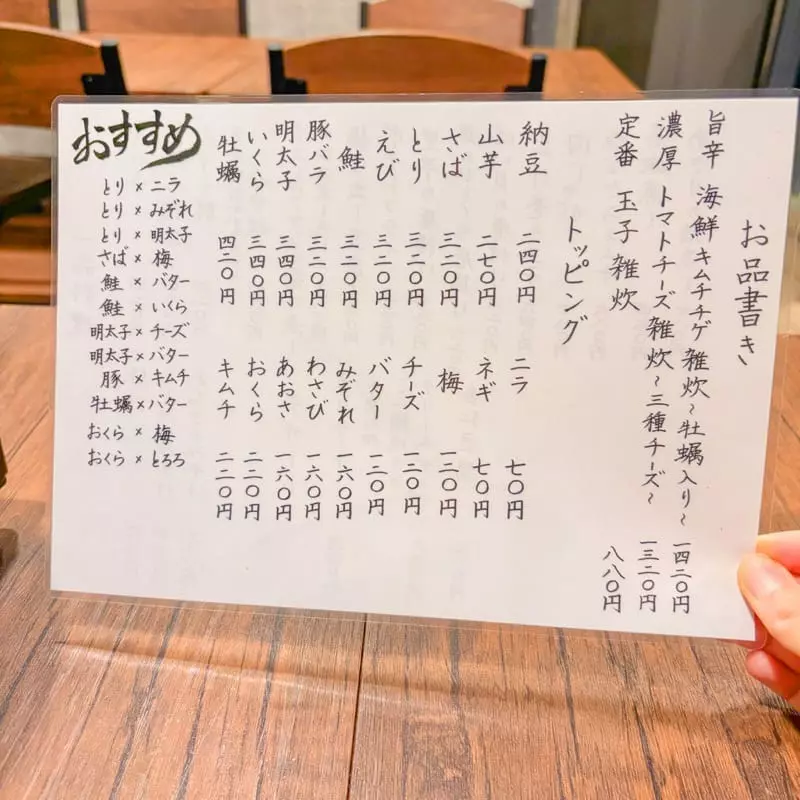 お品書き
旨辛 海鮮キムチチゲ雑炊~牡蠣入り~ 一四二〇円
濃厚 トマトチーズ雑炊~三種チーズ~ 一三二〇円
定番 玉子雑炊 八八〇円
トッピング
納豆 二四〇円
山芋 二七〇円
さば 三二〇円
とり 三二〇円
えび 三二〇円
鮭 三二〇円
豚バラ 三二〇円
明太子 三四〇円
いくら 三四〇円
牡蠣 四二〇円
ニラ 七〇円
ネギ 七〇円
梅 一二〇円
チーズ 一二〇円
バター 一二〇円
みぞれ 一六〇円
わさび 一六〇円
あおさ 一六〇円
おくら 二二〇円
キムチ 二二〇円
おすすめ
とり×ニラ
とり×みぞれ
とり×明太子
さば×梅
鮭×バター
鮭×いくら
明太子×チーズ
明太子×バター
豚×キムチ
牡蠣×バター
おくら×梅
おくら×とろろ